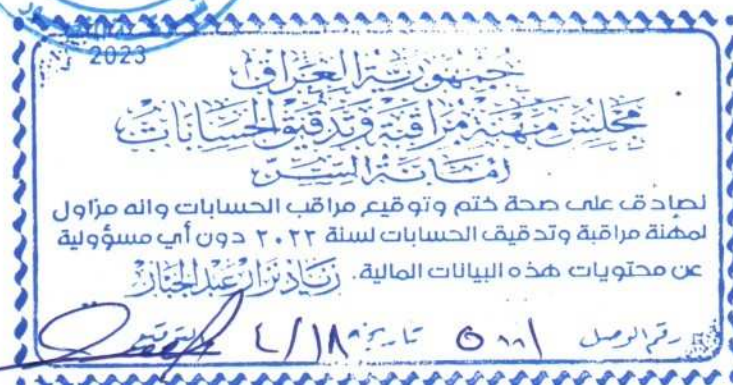 2023
جمهورية العراق
مجلس مهنة مراقبة وتدقيق الحسابات
امانة السر
نصادق على صحة ختم وتوقيع مراقب الحسابات وانه مزاول
لمهنة مراقبة وتدقيق الحسابات لسنة ٢٠٢٢ دون أي مسؤولية
عن محتويات هذه البيانات المالية. زياد نزار عبد الجبار
رقم الوصل تاريخه ٤/١٨ التوقيع